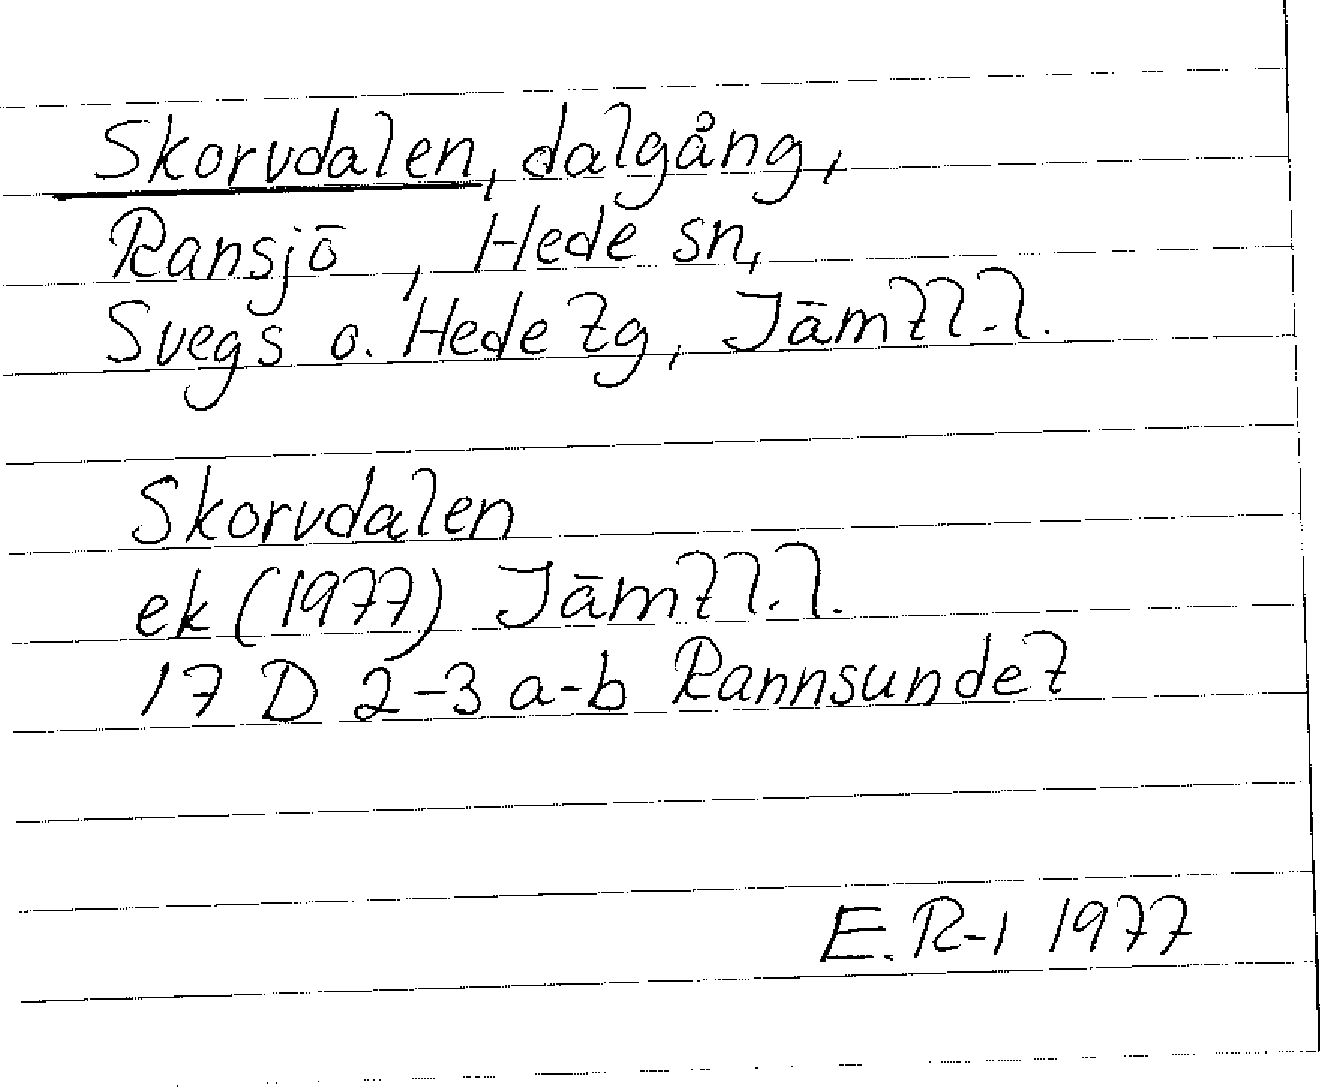 Skorvdalen, dalgång,
Ransjö, Hede sn,
Svegs o. Hede tg, Jämtl.l.
Skorvdalen
ek (1977) Jämtl.l.
17 D 2-3 a-b Rannsundet
E.R-l 1977